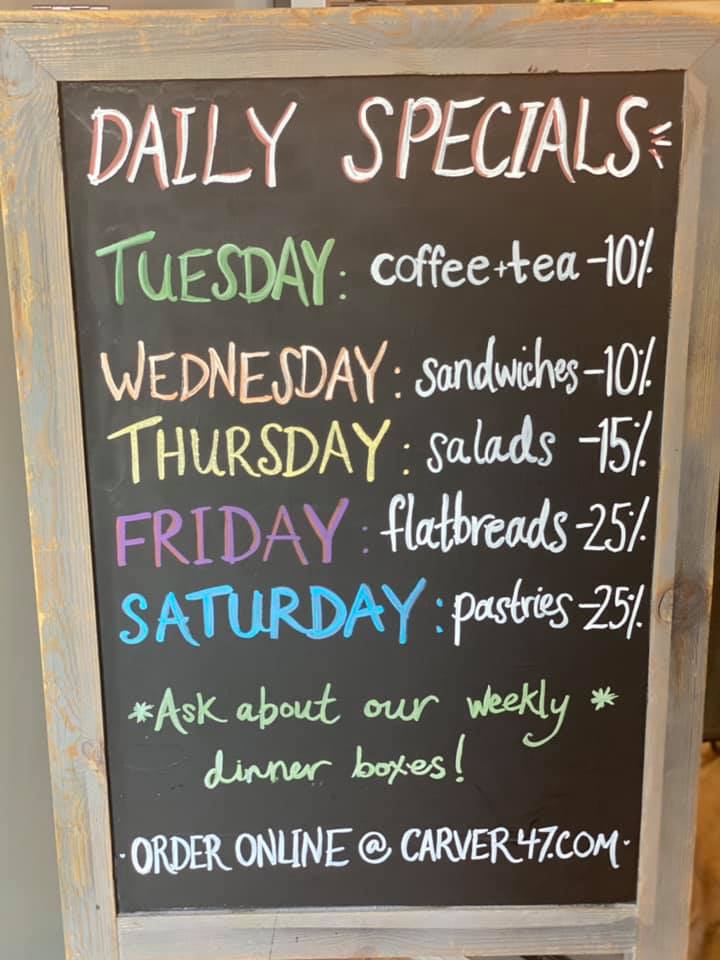 DAILY SPECIALS
TUESDAY: coffee+tea -10%
WEDNESDAY: sandwiches -10%
THURSDAY: salads -15%
FRIDAY: flatbreads -25%
SATURDAY: pastries -25%
*Ask about our weekly *
dinner boxes!
·ORDER ONLINE @ CARVER47.COM·